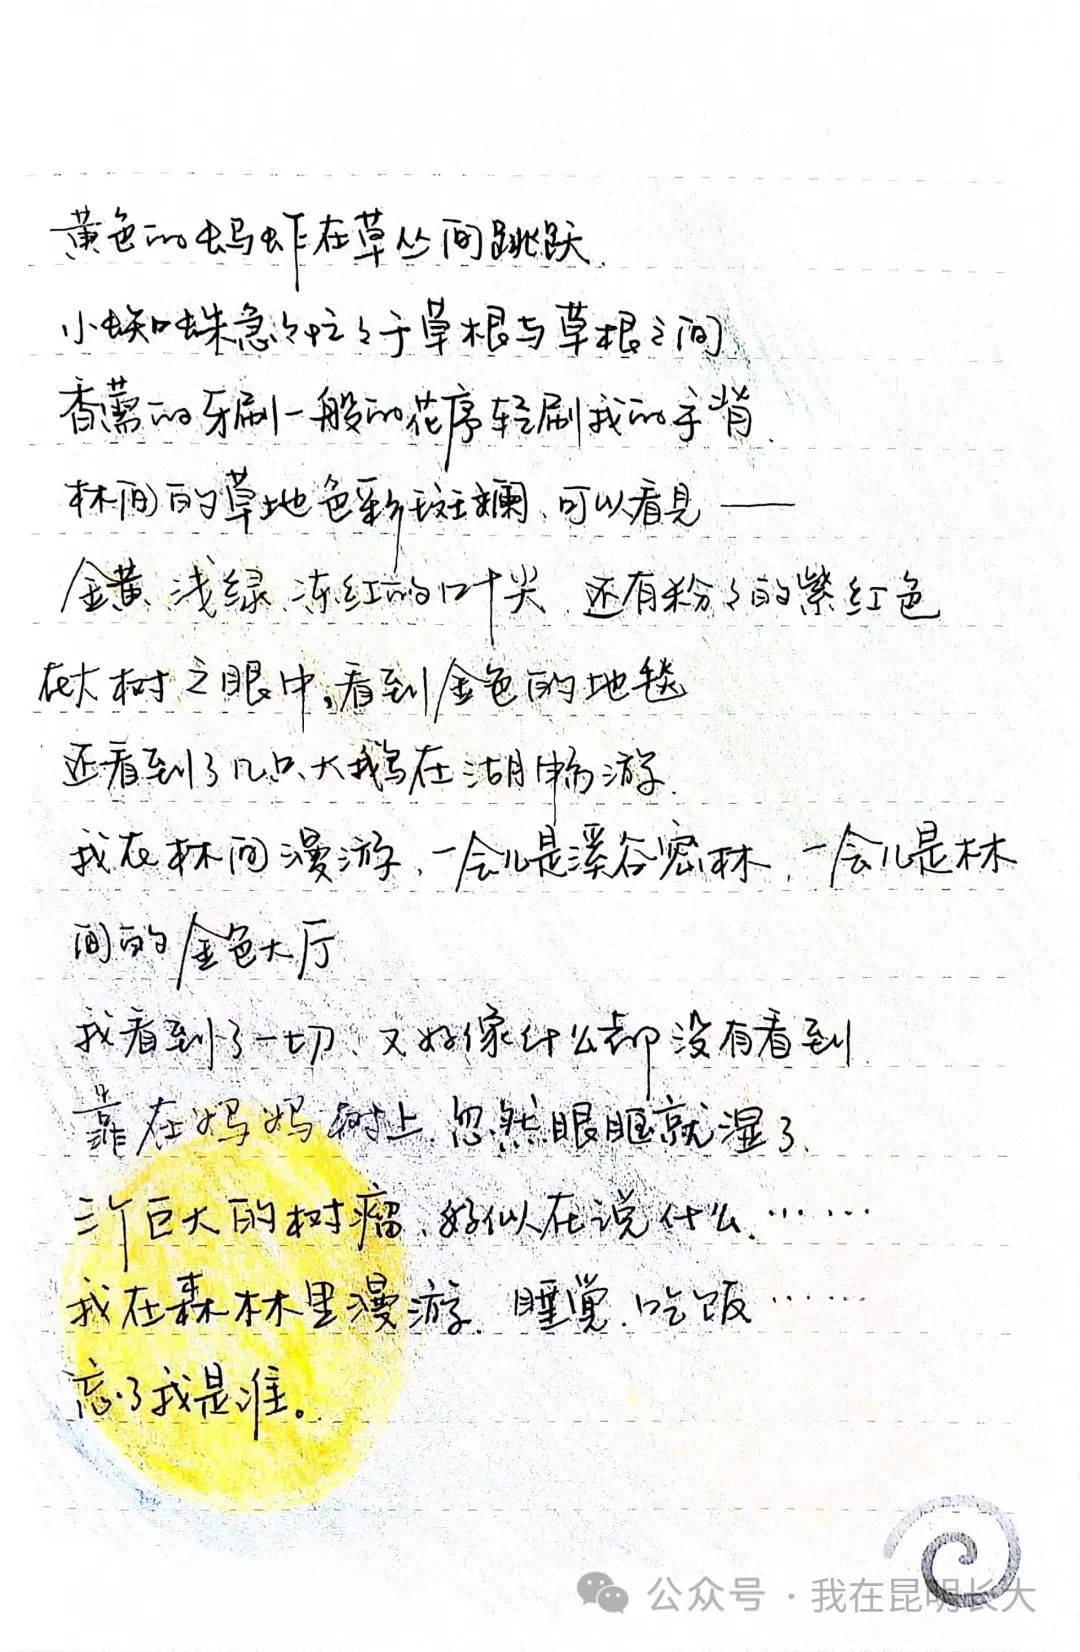 黄色的蚂蚱在草丛间跳跃.
小蜘蛛急々忙々于草根与草根之间,
香薷的牙刷一般的花序轻刷我的手背.
林间的草地色彩斑斓、可以看见——
金黄、浅绿、冻红的叶尖、还有粉々的紫红色
在大树之眼中,看到金色的地毯
还看到了几只大鹅在湖中畅游.
我在林间漫游,一会儿是溪谷密林,一会儿是林
间的金色大厅
我看到了一切、又好像什么都没有看到
靠在妈妈树上、忽然眼眶就湿了、
三个巨大的树瘤、好似在说什么、……
我在森林里漫游、睡觉、吃饭……
忘了我是谁。
公众号·我在昆明长大